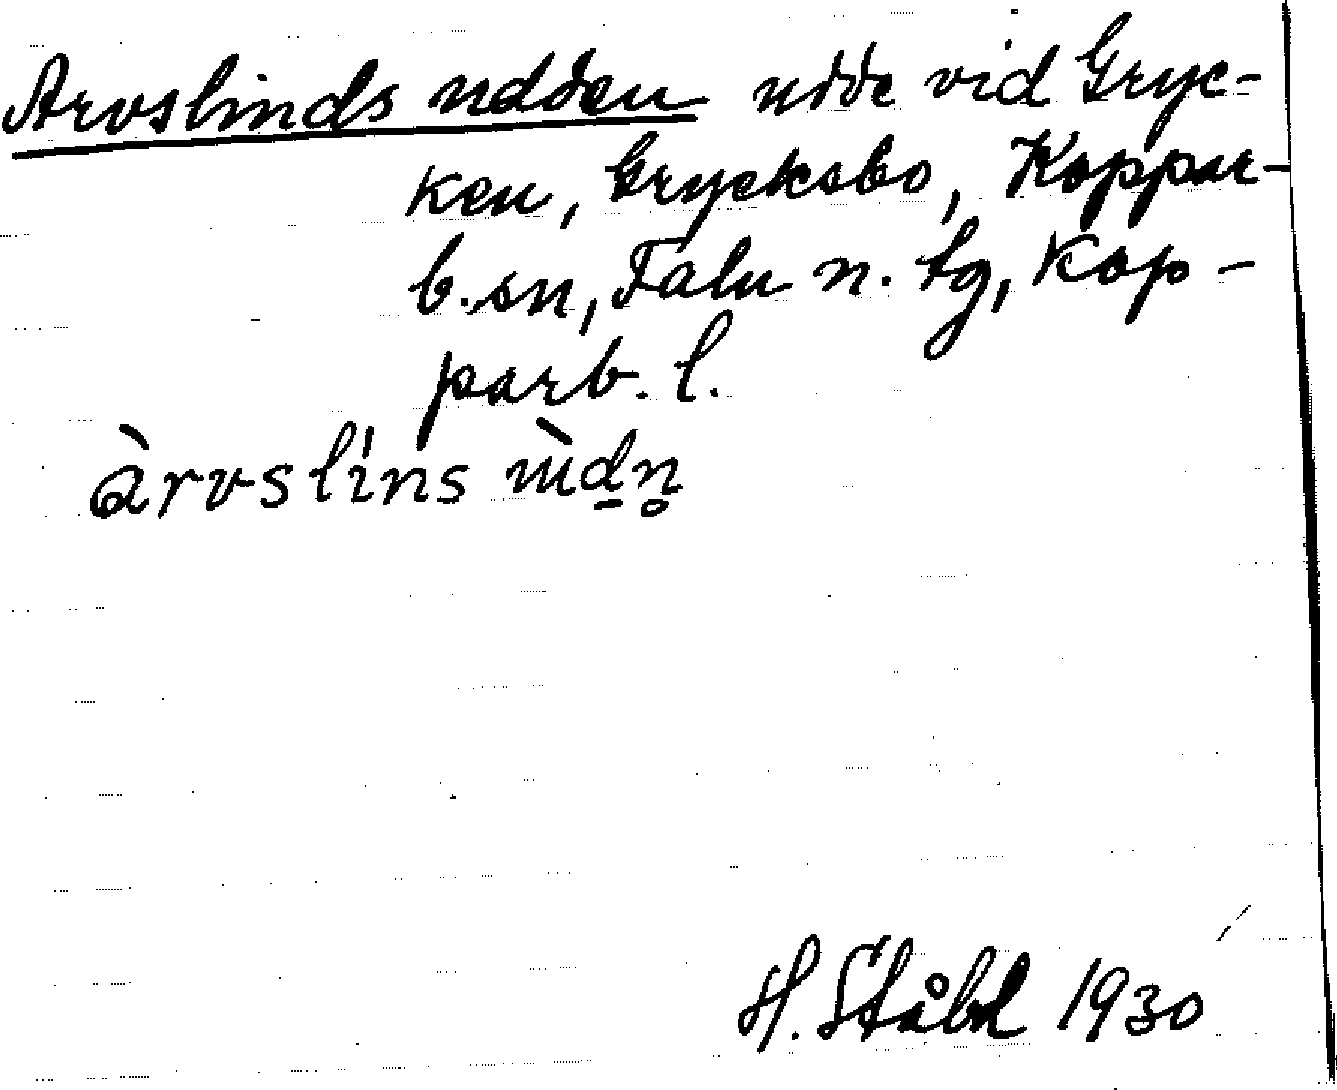 Arvslinds udden udde vid Gryc-
ken, Grycksbo, Koppar-
b. sn, Falu n. tg, Kop-
parb. l.
àrvslins ùdn̥
H. Ståhl 1930